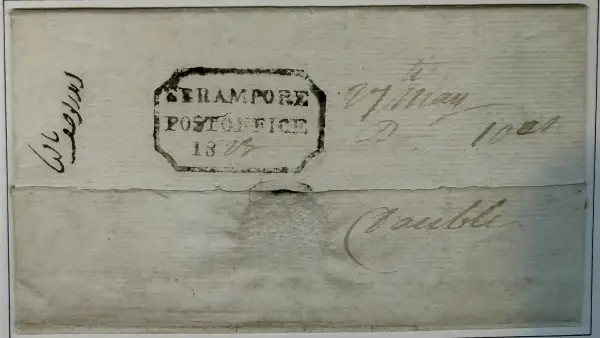 SERAMPORE
POSTOFFICE
1823
27th May
D 10 as
Double